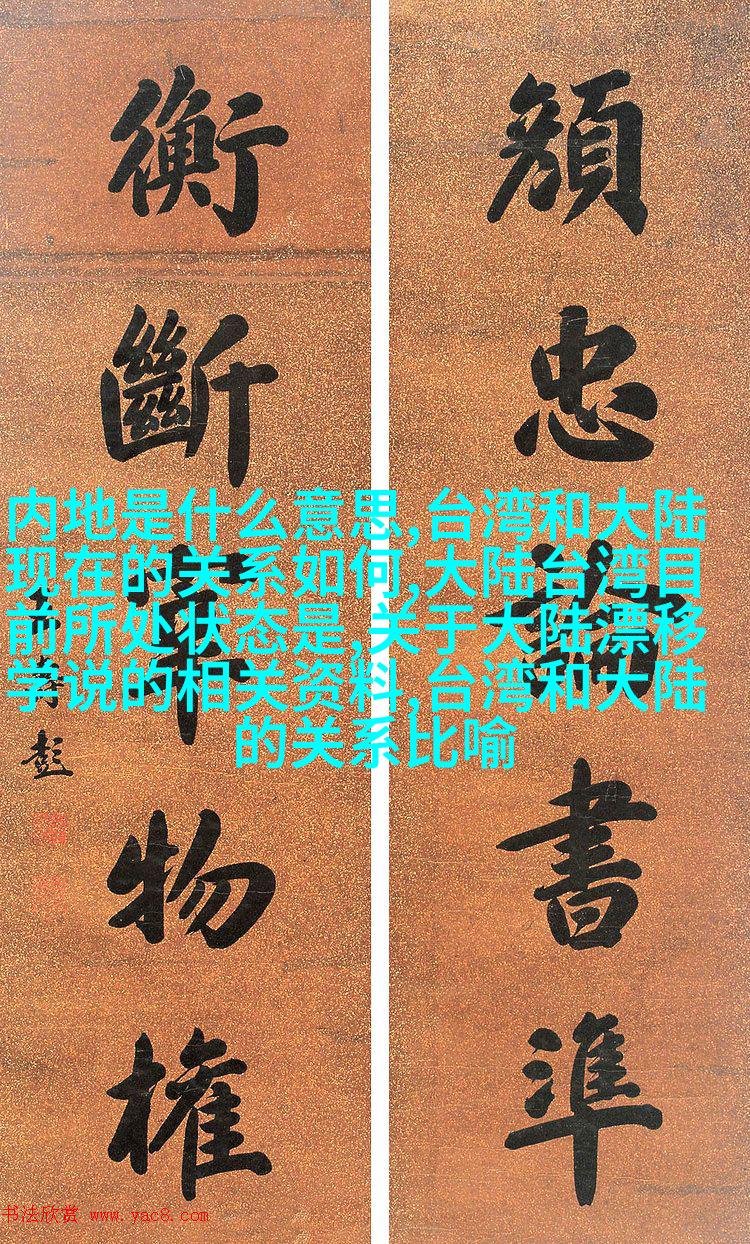 忠書準
衡斷物權
彭
内地是什么意思,台湾和大陆
现在的关系如何,大陆台湾目
前所处状态是,关于大陆漂移
学说的相关资料,台湾和大陆
的关系比喻
书法欣赏 www.yac8.com